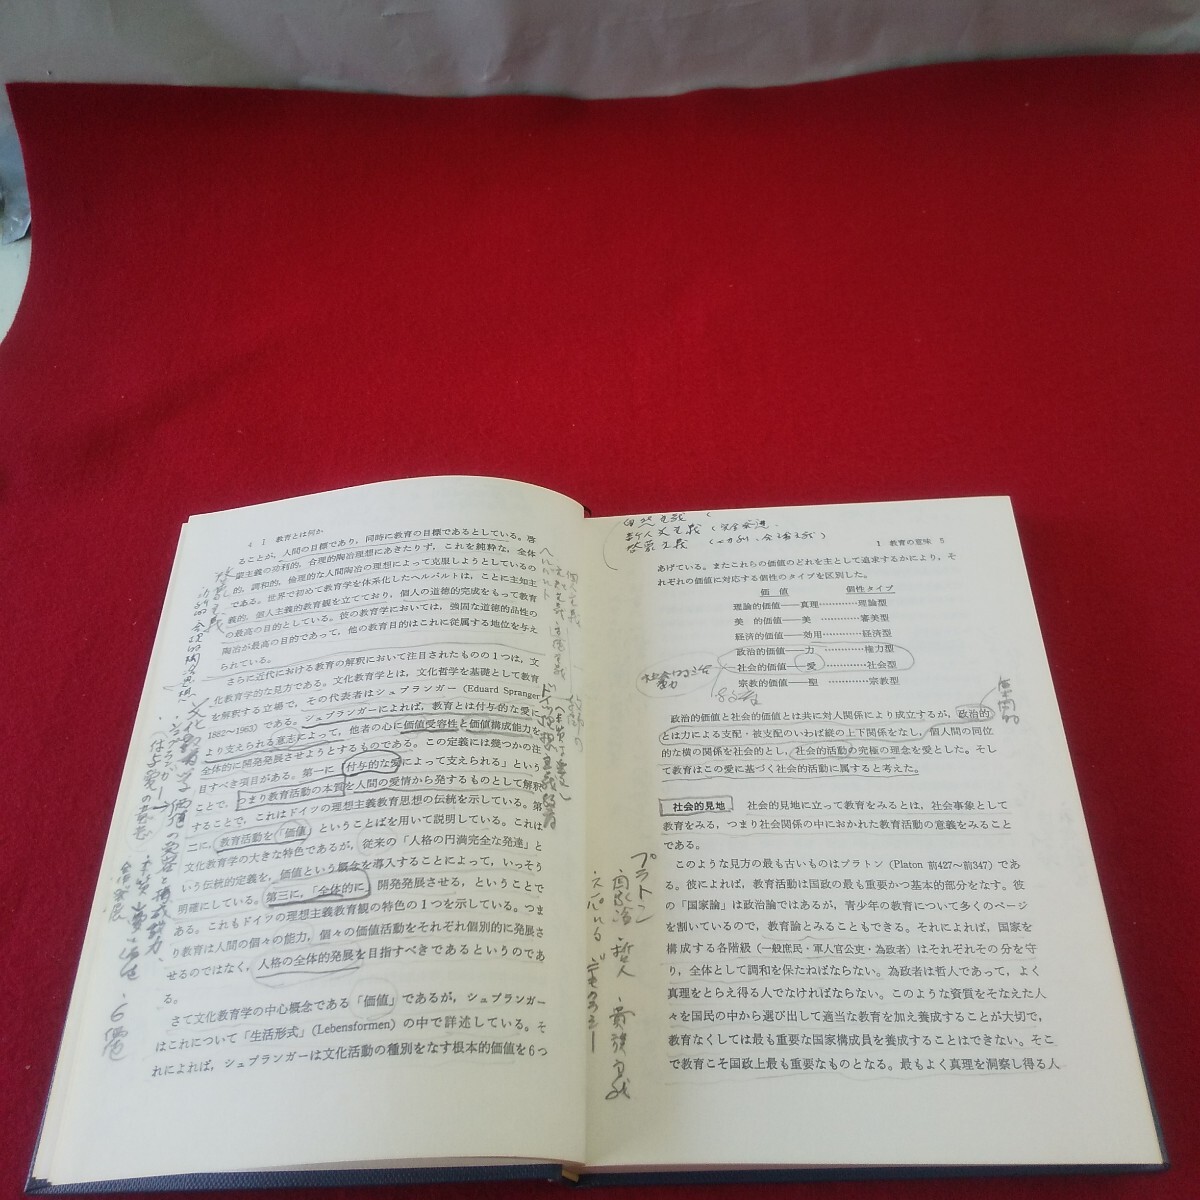 4 Ⅰ 教育とは何か
ることが，人間の目標であり，同時に教育の目標であるとしている。啓
蒙主義の功利的，合理的陶冶理想にあきたりず，これを純粋な，全体
的，調和的，倫理的な人間陶冶の理想によって克服しようとしているの
である。世界で初めて教育学を体系化したヘルバルトは，ことに主知主
義的，個人主義的教育観を立てており，個人の道徳的完成をもって教育
の最高の目的としている。彼の教育学においては，強固な道徳的品性の
陶冶が最高の目的であって，他の教育目的はこれに従属する地位を与え
られている。
さらに近代における教育の解釈において注目されたものの1つは，文
化教育学的な見方である。文化教育学とは，文化哲学を基礎として教育
を解釈する立場で，その代表者はシュプランガー (Eduard Spranger
1882〜1963) である。シュプランガーによれば，教育とは付与的な愛に
より支えられる意志によって，他者の心に価値受容性と価値構成能力を
全体的に開発発展させようとするものである。この定義には幾つかの注
目すべき項目がある。第一に「付与的な愛によって支えられる」という
ことで，つまり教育活動の本質を人間の愛情から発するものとして解釈
することで，これはドイツの理想主義教育思想の伝統を示している。第
二に，教育活動を「価値」ということばを用いて説明している。これは
文化教育学の大きな特色であるが，従来の「人格の円満完全な発達」と
いう伝統的定義を，価値という概念を導入することによって，いっそう
明確にしている。第三に，「全体的に」開発発展させる，ということで
ある。これもドイツの理想主義教育観の特色の1つを示している。つま
り教育は人間の個々の能力，個々の価値活動をそれぞれ個別的に発展さ
せるのではなく，人格の全体的発展を目指すべきであるというのであ
る。
さて文化教育学の中心概念である「価値」であるが，シュプランガー
はこれについて「生活形式」(Lebensformen) の中で詳述している。そ
れによれば，シュプランガーは文化活動の種別をなす根本的価値を6つ
1 教育の意味 5
あげている。またこれらの価値のどれを主として追求するかにより，そ
れぞれの価値に対応する個性のタイプを区別した。
価 値 個性タイプ
理論的価値——真理…………理論型
美 的価値——美 …………審美型
経済的価値——効用…………経済型
政治的価値——力 …………権力型
社会的価値——愛 …………社会型
宗教的価値——聖 …………宗教型
政治的価値と社会的価値とは共に対人関係により成立するが，政治的
とは力による支配・被支配のいわば縦の上下関係をなし，個人間の同位
的な横の関係を社会的とし，社会的活動の究極の理念を愛とした。そし
て教育はこの愛に基づく社会的活動に属すると考えた。
社会的見地 社会的見地に立って教育をみるとは，社会事象として
教育をみる，つまり社会関係の中におかれた教育活動の意義をみること
である。
このような見方の最も古いものはプラトン (Platon 前427〜前347) であ
る。彼によれば，教育活動は国政の最も重要かつ基本的部分をなす。彼
の「国家論」は政治論ではあるが，青少年の教育について多くのページ
を割いているので，教育論とみることもできる。それによれば，国家を
構成する各階級（一般庶民・軍人官公吏・為政者）はそれぞれその分を守
り，全体として調和を保たねばならない。為政者は哲人であって，よく
真理をとらえ得る人でなければならない。このような資質をそなえた人
々を国民の中から選び出して適当な教育を加え養成することが大切で，
教育なくしては最も重要な国家構成員を養成することはできない。そこ
で教育こそ国政上最も重要なものとなる。最もよく真理を洞察し得る人
プラトン
国家論・哲人・貴族